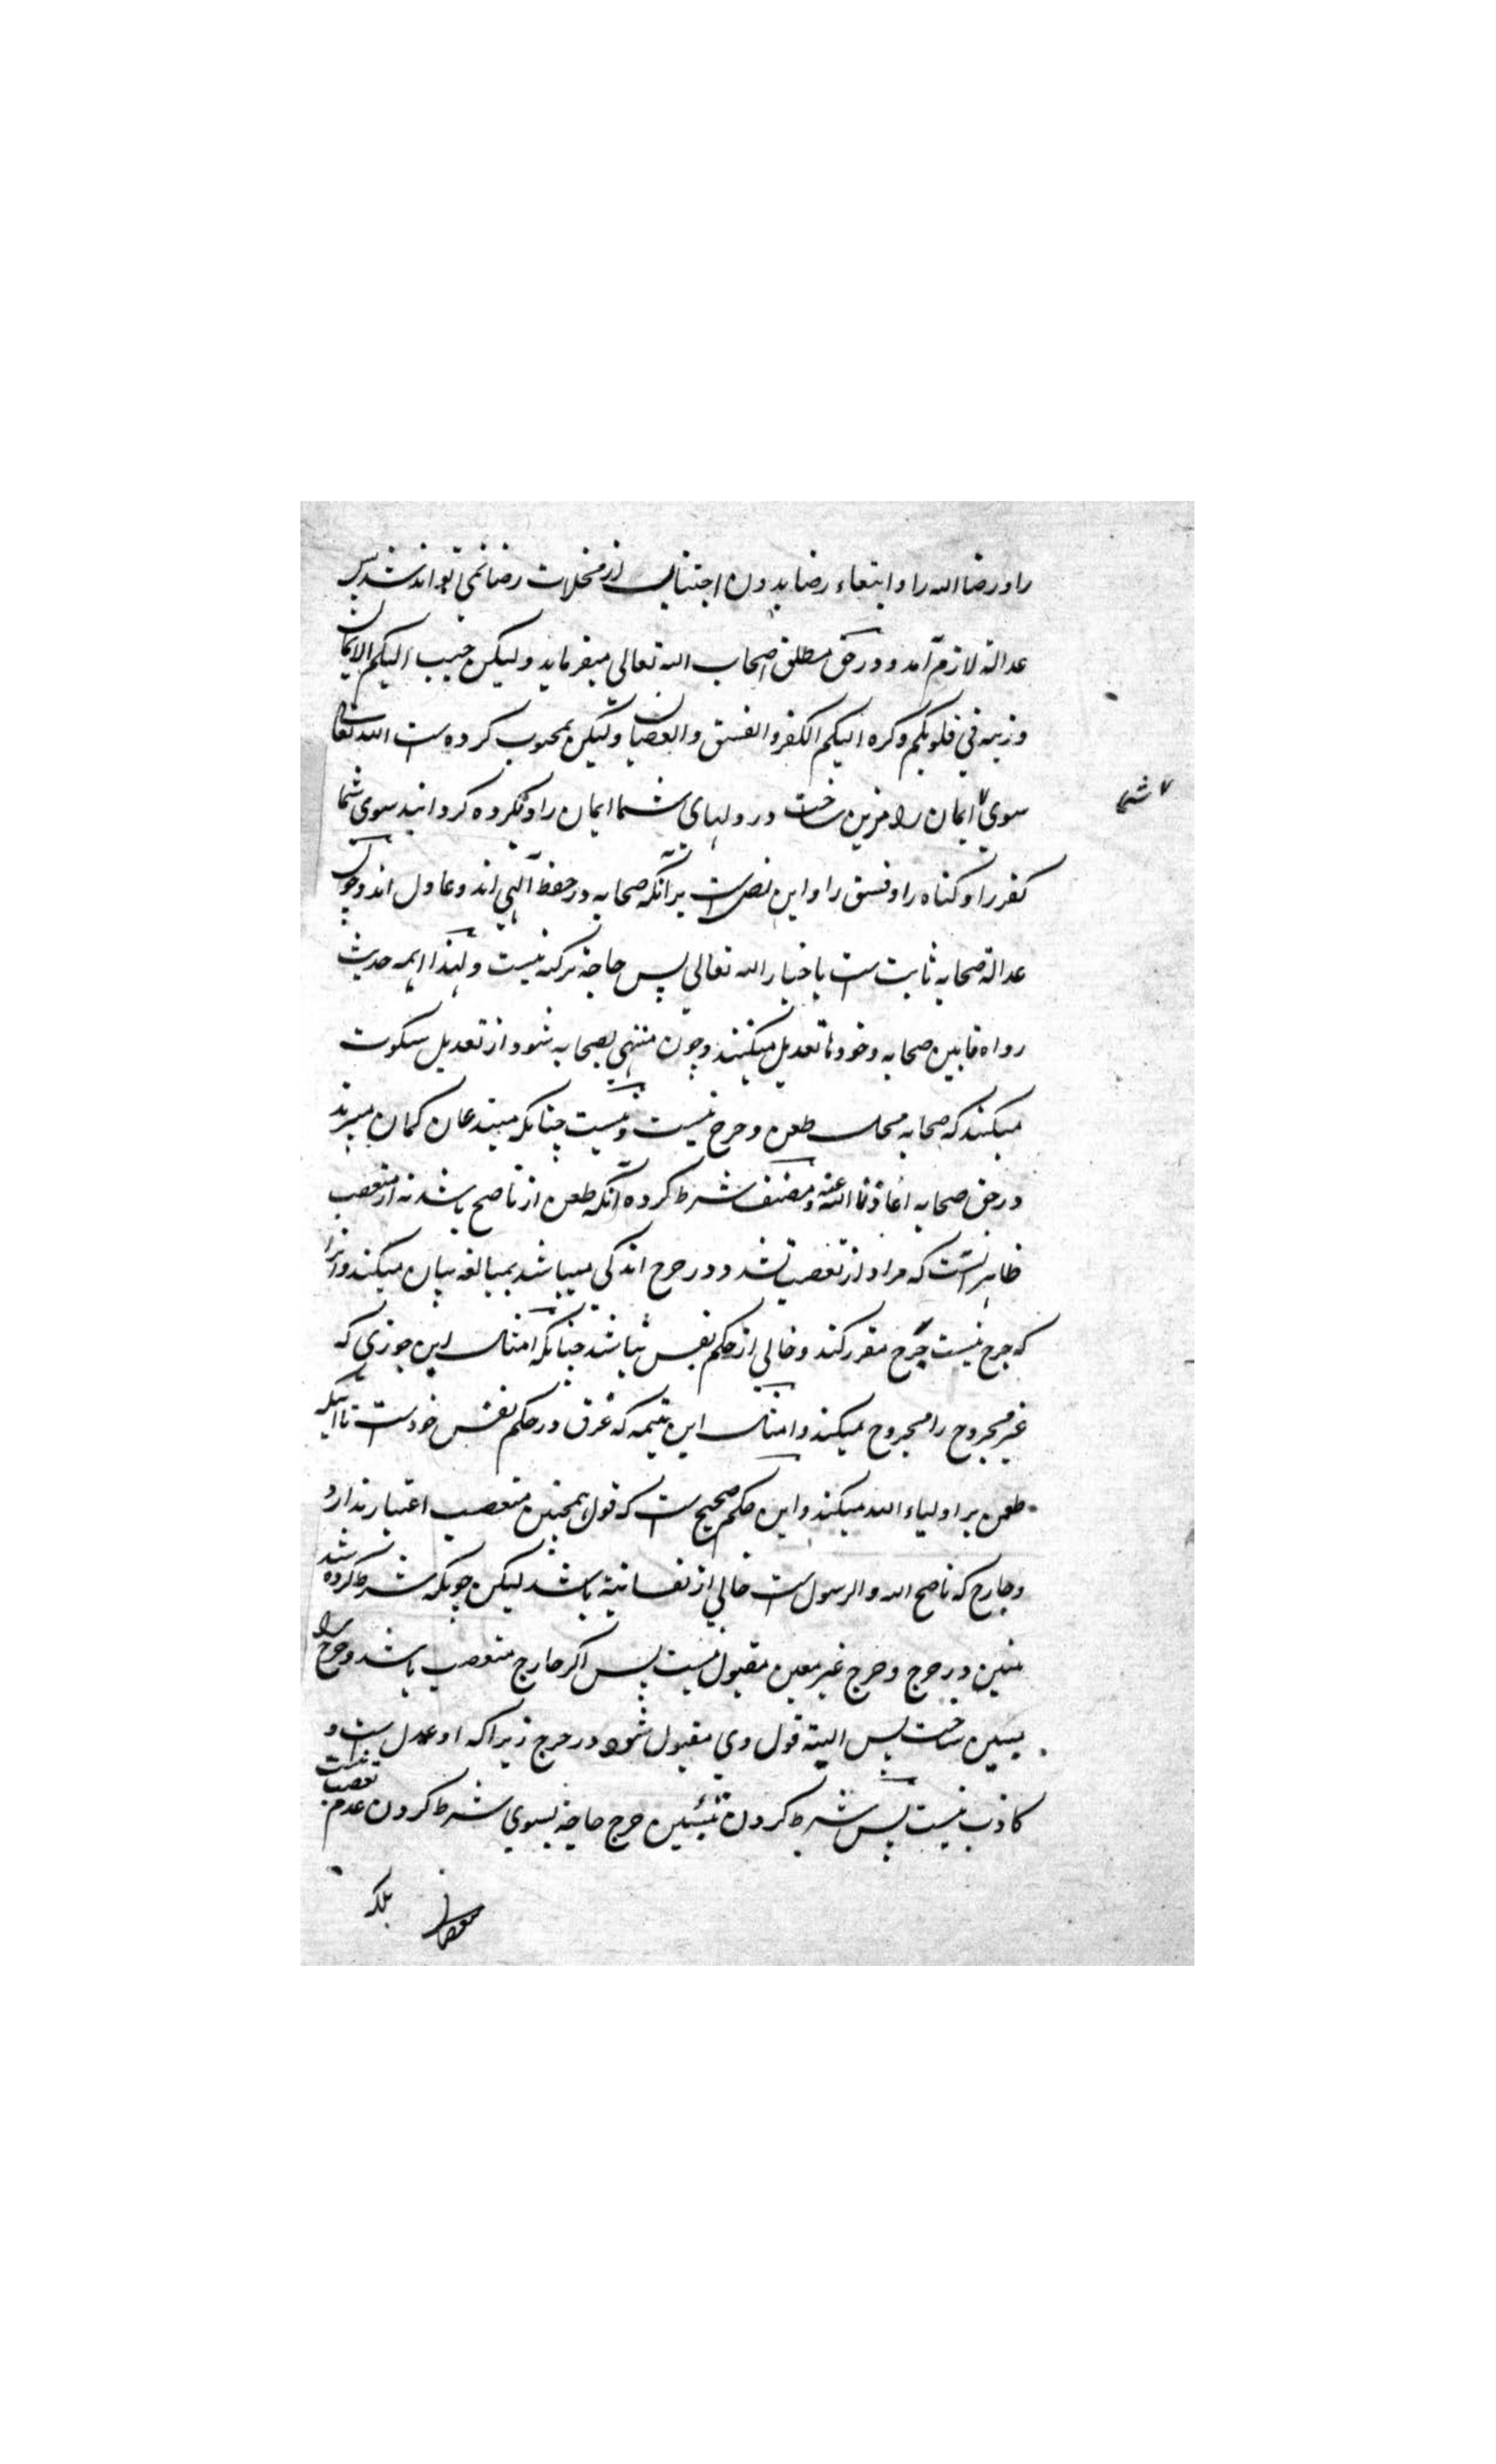 را و رضا الله را و ابتغاء رضا بدون اجتناب از مخلات رضا نمی تواند شد پس
عدالة لازم آمد و در حق مطلق اصحاب الله تعالی میفرماید ولیکن حبب الیکم الایمان
وزینه فی قلوبکم وکره الیکم الکفر والفسق والعصیان ولیکن محبوب کرده ست الله تعالی
سوی ایمان را و مزین ساخت در دلهای شما ایمان را و مکروه گردانید سوی شما
شما
کفر را و گناه را و فسق را و این نص ست برآنکه صحابه در حفظ الهی اند و عادل اند و چون
عدالة صحابه ثابت ست باخبار الله تعالی پس حاجة تزکیه نیست و لهذا ایمه حدیث
رواه مابین صحابه و خود را تعدیل میکنند و چون منتهی بصحابه شود از تعدیل سکوت
میکنند که صحابه محل طعن و جرح نیست و نیست چنانکه مبتدعان گمان میبرند
در حق صحابه اعاذنا الله عنه و مصنف شرط کرده آنکه طعن از ناصح باشد نه از متعصب
ظاهر آنست که مراد از تعصب تشدد در جرح اندکی میباشد بمبالغه بیان میکند و آنرا
که جرح نیست جرح مقرر کند و خالی از حکم نفس نباشد چنانکه امثال ابن جوزی که
غیر مجروح را مجروح میکند و امثال ابن تیمیه که غرق در حکم نفس خودست تا آنکه
طعن بر اولیاء الله میکند و این حکم صحیح ست که قول همچنین متعصب اعتبار ندارد
و جارح که ناصح الله والرسول ست خالی از نفسانیة باشد لیکن چونکه شرط کرده شد
تبیین در جرح و جرح غیر معین مقبول نیست پس اگر جارح متعصب باشد و جرح را
تبیین ساخت پس البته قول وی مقبول شود در جرح زیراکه او عدل ست و
کاذب نیست پس شرط کردن تبیین جرح حاجة بسوی شرط کردن عدم تعصب نیست
بلکه